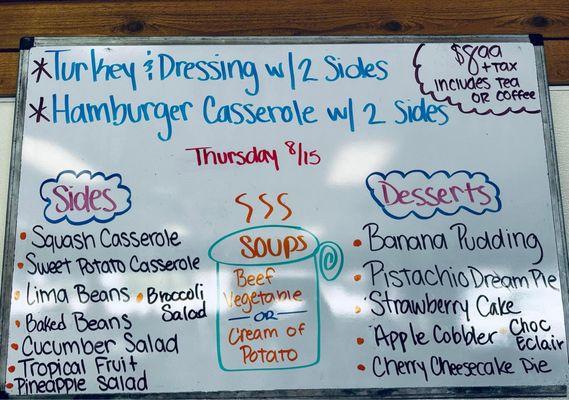 *Turkey & Dressing w/2 Sides
*Hamburger Casserole w/2 Sides
$8.99
+ Tax
includes Tea
or coffee
Thursday 8/15
Sides
• Squash Casserole
• Sweet Potato Casserole
• Lima Beans
• Broccoli
Salad
• Baked Beans
• Cucumber Salad
• Tropical Fruit
• Pineapple Salad
SOUPS
Beef
Vegetable
- OR -
Cream of
Potato
Desserts
• Banana Pudding
• Pistachio Dream Pie
• Strawberry Cake
• Apple Cobbler
• Choc
Eclair
• Cherry Cheesecake Pie